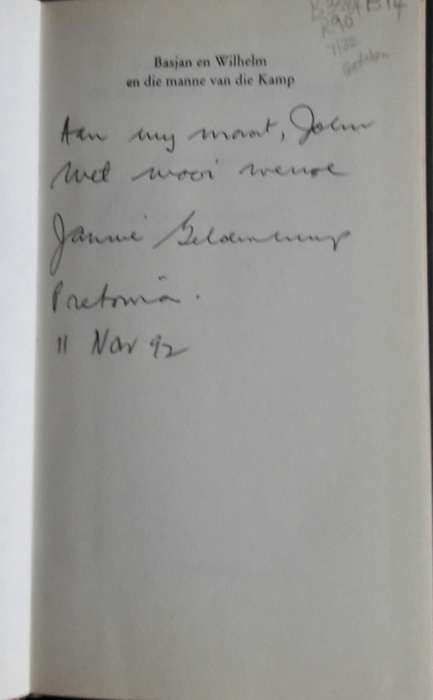 Basjan en Wilhelm
en die manne van die Kamp
R90
Aan my maat, John
Met mooi wense
Jannie Geldenhuys
Pretoria.
11 Nov 92